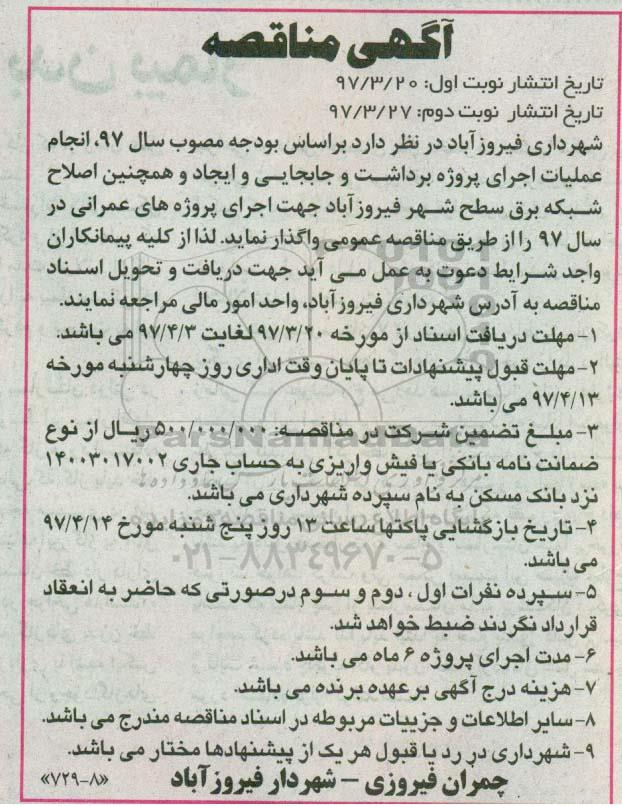 آگهی مناقصه
تاریخ انتشار نوبت اول: ۹۷/۳/۲۰
تاریخ انتشار نوبت دوم: ۹۷/۳/۲۷
شهرداری فیروزآباد در نظر دارد براساس بودجه مصوب سال ۹۷، انجام
عملیات اجرای پروژه برداشت و جابجایی و ایجاد و همچنین اصلاح
شبکه برق سطح شهر فیروزآباد جهت اجرای پروژه های عمرانی در
سال ۹۷ را از طریق مناقصه عمومی واگذار نماید. لذا از کلیه پیمانکاران
واجد شرایط دعوت به عمل می آید جهت دریافت و تحویل اسناد
مناقصه به آدرس شهرداری فیروزآباد، واحد امور مالی مراجعه نمایند.
۱- مهلت دریافت اسناد از مورخه ۹۷/۳/۲۰ لغایت ۹۷/۴/۳ می باشد.
۲- مهلت قبول پیشنهادات تا پایان وقت اداری روز چهارشنبه مورخه
۹۷/۴/۱۳ می باشد.
۳- مبلغ تضمین شرکت در مناقصه: ۵۰۰/۰۰۰/۰۰۰ ریال از نوع
ضمانت نامه بانکی یا فیش واریزی به حساب جاری ۱۴۰۰۳۰۱۷۰۰۲
نزد بانک مسکن به نام سپرده شهرداری می باشد.
۴- تاریخ بازگشایی پاکتها ساعت ۱۳ روز پنج شنبه مورخ ۹۷/۴/۱۴
می باشد.
۵- سپرده نفرات اول ، دوم و سوم درصورتی که حاضر به انعقاد
قرارداد نگردند ضبط خواهد شد.
۶- مدت اجرای پروژه ۶ ماه می باشد.
۷- هزینه درج آگهی بر عهده برنده می باشد.
۸- سایر اطلاعات و جزییات مربوطه در اسناد مناقصه مندرج می باشد.
۹- شهرداری در رد یا قبول هر یک از پیشنهادها مختار می باشد.
چمران فیروزی - شهردار فیروزآباد
«۷۲۹-۸»
ParsNamadData
۰۲۱-۸۸۳۴۹۶۷۰-۵